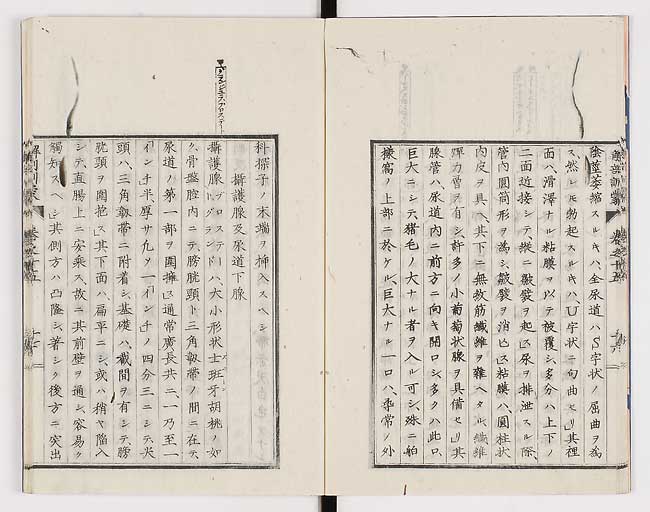 陰莖萎縮スルキハ全尿道ハS字状ノ屈曲ヲ為
ス然レ𪜈勃起スルキハU字状ニ句曲セリ其裡
面ハ滑澤ナル粘膜ヲ以テ被覆シ多分ハ上下ノ
二面近接シテ縱ニ皺襞ヲ起シ尿ヲ排泄スル際
管内圓筒形ヲ為シ皺襞ヲ消ヒ粘膜ハ圓柱状
内皮ヲ具ヘ其下ニ無数筋纖維ヲ雜ヘタル纖維
彈力層ヲ有シ許多ノ小葡萄状腺ヲ具備セリ其
腺管ハ尿道内ニ前方ニ向キ開口シ多クハ此口
巨大ニシテ猪毛ノ大ナル者ヲ入ル可シ殊ニ舶
撇窩ノ上部ニ於ケル巨大ナル一口ハ尋常ノ外
科探子ノ末端ヲ挿入スヘシ
攝護腺及尿道下腺
攝護腺プロステートグランドハ大小形状士班牙胡桃ノ如
ク骨盤腔内ニテ膀胱頭ト三角靱帯ノ間ニ在テ
尿道ノ第一部ヲ圍擁シ通常廣長共ニ一乃至一
インチ半厚サ九ヲ一インチノ四分三ニシテ尖
頭ハ三角靱帯ニ附着シ基礎ハ截間ヲ有シテ膀
胱頭ヲ圍抱ス其下面ハ扁平ニシ或ハ稍ヤ陥入
シテ直腸上ニ安乗ス故ニ其前壁ヲ通シ容易ク
觸知スヘシ其側方ハ凸隆シ著シク後方ニ突出